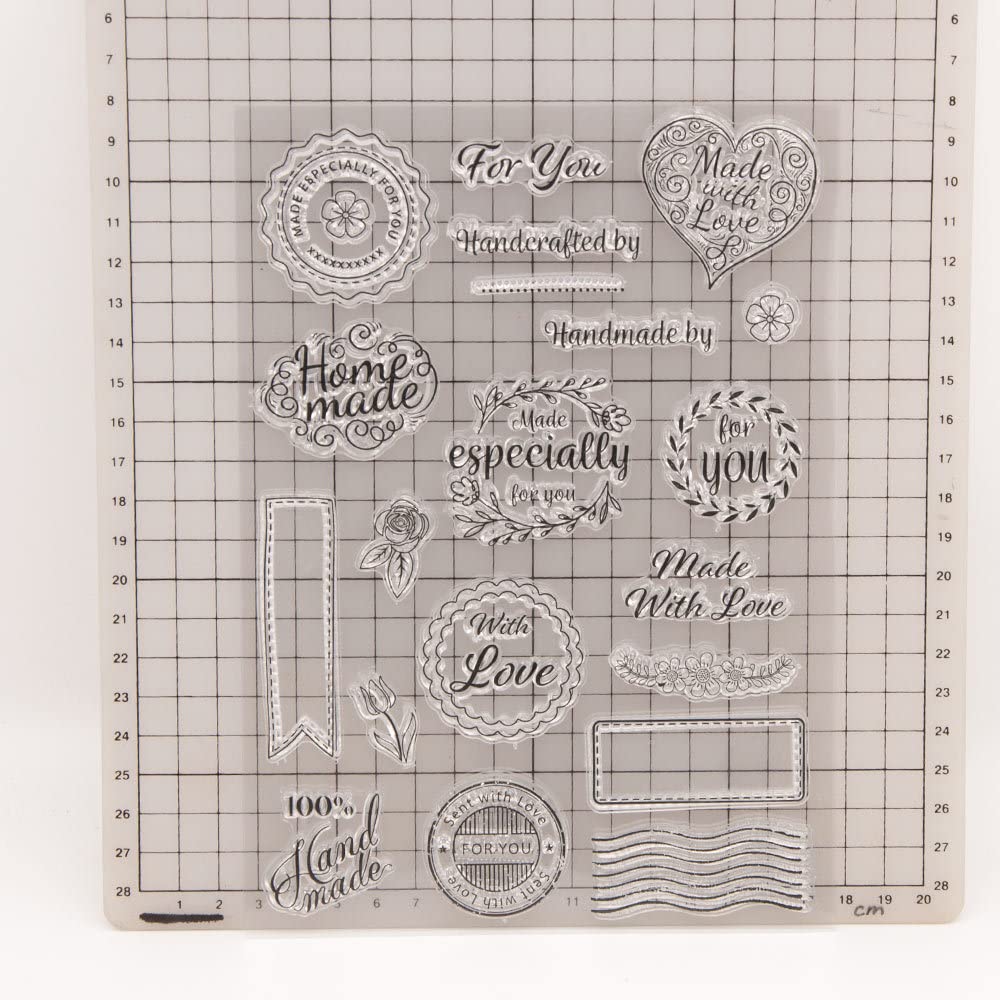 6 6
7 7
8 8
9 9
10 10
11 11
12 12
13 13
14 14
15 15
16 16
17 17
18 18
19 19
20 20
21 21
22 22
23 23
24 24
25 25
26 26
27 27
28 28
1 2 3 5 6 7 11 18 19 20
cm
MADE ESPECIALLY FOR YOU
xxxxxxxxxx
For You
Made
with
Love
Handcrafted by
Handmade by
Home
made
Made
especially
for you
for
you
Made
With Love
With
Love
100%
Hand
made
Sent with Love
FOR YOU
Sent with Love